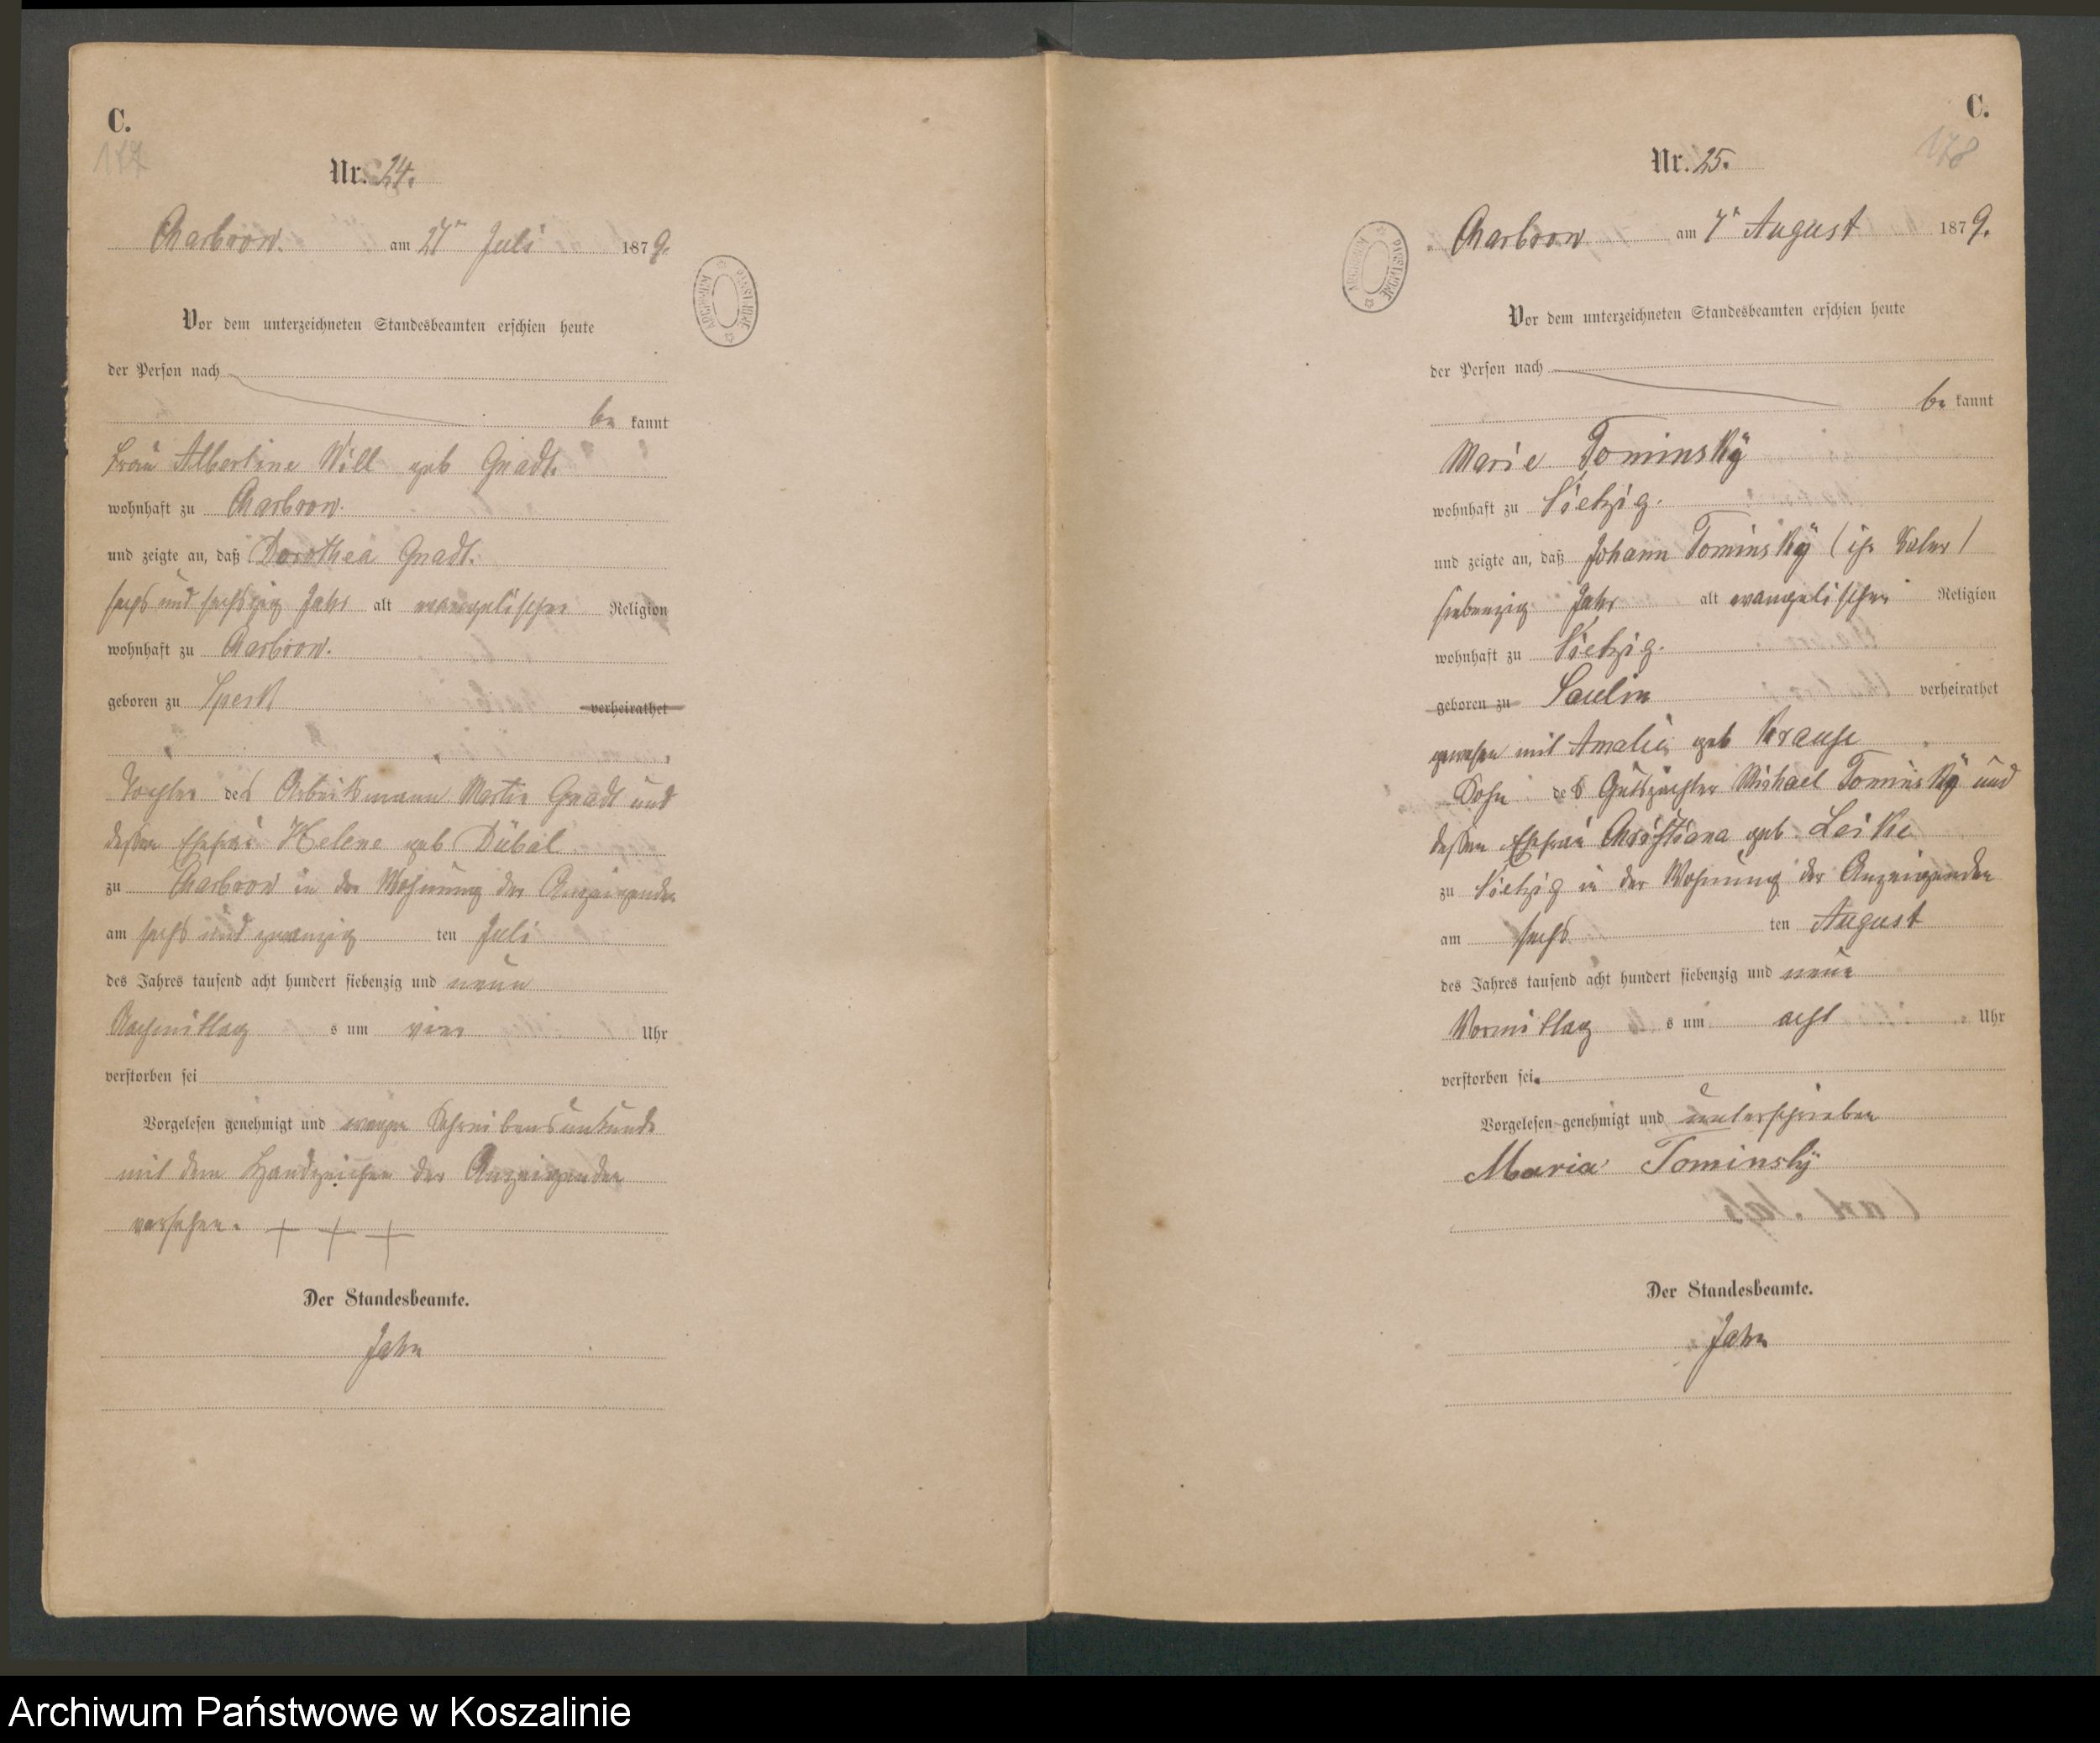 C.
177
Nr. 24.
Charbrow. am 27ten Juli 1879.
Vor dem unterzeichneten Standesbeamten erschien heute
der Person nach
be kannt
Frau Albertine Will geb Gnadt.
wohnhaft zu Charbrow.
und zeigte an, daß Dorothea Gnadt.
sechs und sechszig Jahr alt evangelischer Religion
wohnhaft zu Charbrow.
geboren zu Speck verheirathet
Tochter des Arbeitsmann Martin Gnadt und
dessen Ehefrau Helene geb Dübal
zu Charbrow in der Wohnung der Anzeigenden
am sechs und zwanzig ten Juli
des Jahres tausend acht hundert siebenzig und neun
Nachmittag s um vier Uhr
verstorben sei
Vorgelesen genehmigt und wegen Schreibensunkunde
mit dem Handzeichen der Anzeigenden
versehen. + + +
Der Standesbeamte.
Jahn
C.
178
Nr. 25.
Charbrow am 7n August 1879.
Vor dem unterzeichneten Standesbeamten erschien heute
der Person nach
be kannt
Marie Tominsky
wohnhaft zu Vietzig.
und zeigte an, daß Johann Tominsky (ihr Vater)
siebenzig Jahr alt evangelischer Religion
wohnhaft zu Vietzig.
geboren zu Saulin verheirathet
gewesen mit Amalie geb Krause
Sohn des Gutspächter Michael Tominsky und
dessen Ehefrau Christiana geb. Leike
zu Vietzig in der Wohnung der Anzeigenden
am sechs ten August
des Jahres tausend acht hundert siebenzig und neun
Vormittag s um acht Uhr
verstorben sei.
Vorgelesen genehmigt und unterschrieben
Maria Tominsky
Der Standesbeamte.
Jahn
ARCHIWUM PAŃSTWOWE
Archiwum Państwowe w Koszalinie